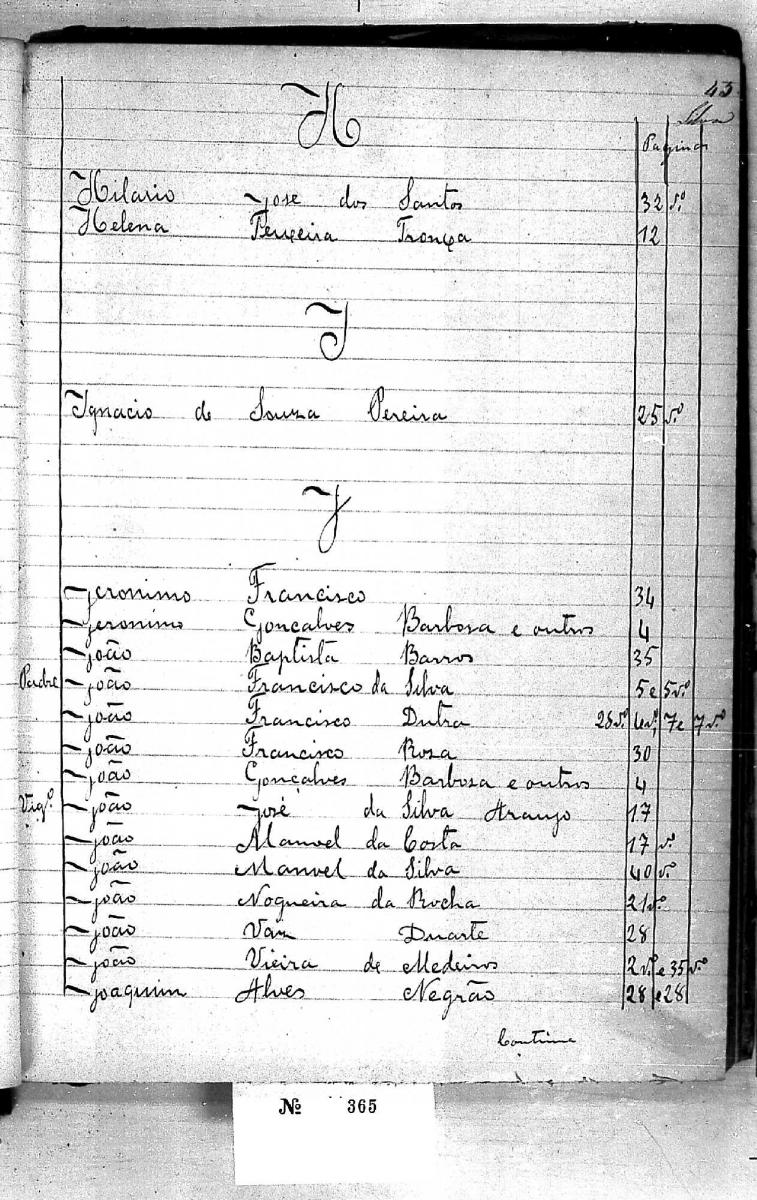 43
Silva
H
Paginas
Hilario José dos Santos 32 vº
Helena Ferreira Tronça 12
I
Ignacio de Souza Pereira 25 vº
J
Jeronimo Francisco 34
Jeronimo Gonçalves Barbosa e outros 4
João Baptista Barros 35
Padre João Francisco da Silva 5 e 5 vº
João Francisco Dutra 28 vº 6 vº, 7 e 7 vº
João Francisco Rosa 30
João Gonçalves Barbosa e outros 4
Vigº João José da Silva Araujo 17
João Manoel da Costa 17 vº
João Manoel da Silva 40 vº
João Nogueira da Rocha 21 vº
João Vaz Duarte 28
João Vieira de Medeiros 2 vº e 35 vº
Joaquim Alves Negrão 28 e 28
Continua
Nº 365